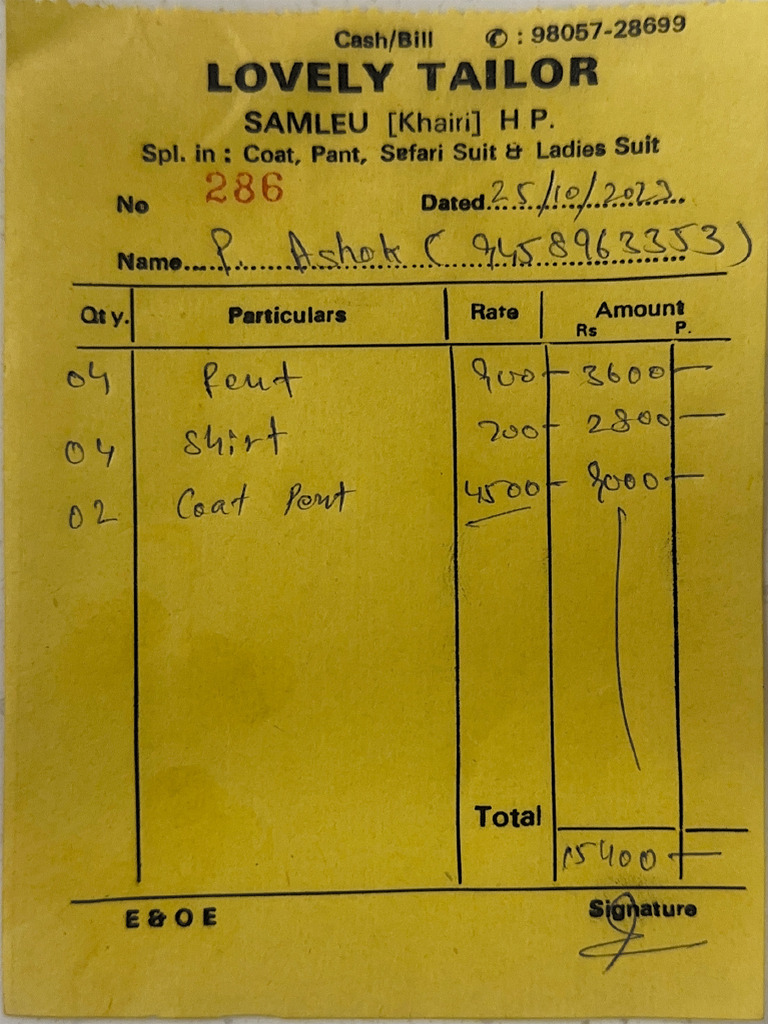 Cash/Bill ✆ : 98057-28699
LOVELY TAILOR
SAMLEU [Khairi] H P.
Spl. in : Coat, Pant, Safari Suit & Ladies Suit
No 286 Dated 25/10/2023
Name P. Ashok ( 9458963353 )
Qty. Particulars Rate Amount
Rs P.
04 Pent 900 - 3600 -
04 Shirt 700 - 2800 -
02 Coat Pent 4500 - 9000 -
Total
15400 -
E & O E Signature